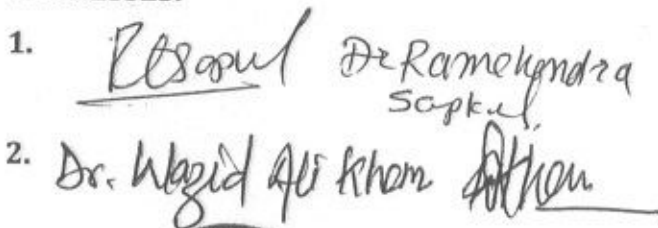 1. Dr Ramchandra
Sapkal
2. Dr. Wazid Ali Khan